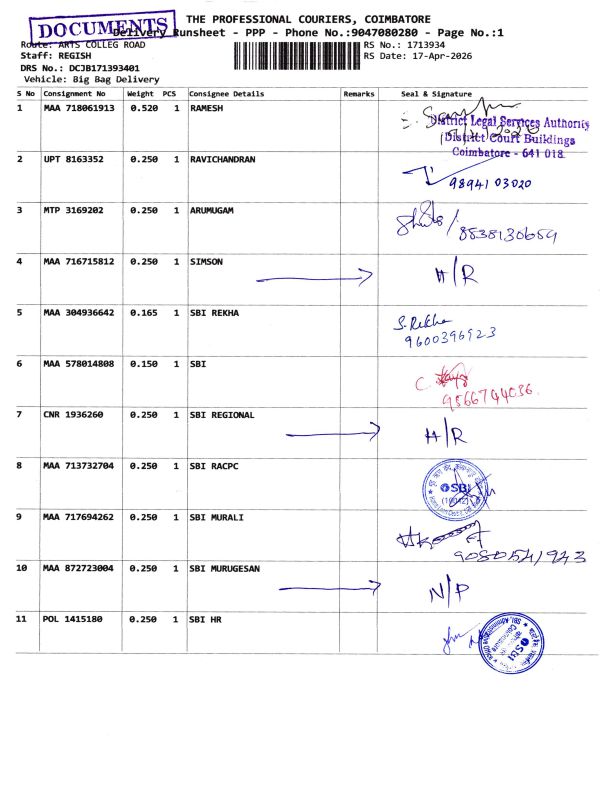 DOCUMENTS
THE PROFESSIONAL COURIERS, COIMBATORE
Delivery Runsheet - PPP - Phone No.:9047080280 - Page No.:1
Route: ARTS COLLEG ROAD
RS No.: 1713934
Staff: REGISH
RS Date: 17-Apr-2026
DRS No.: DCJB171393401
Vehicle: Big Bag Delivery
S No Consignment No Weight PCS Consignee Details Remarks Seal & Signature
1 MAA 718061913 0.520 1 RAMESH
District Legal Services Authority
District Court Buildings
Coimbatore - 641 018
2 UPT 8163352 0.250 1 RAVICHANDRAN
98941 03020
3 MTP 3169202 0.250 1 ARUMUGAM
8538130659
4 MAA 716715812 0.250 1 SIMSON H/R
5 MAA 304936642 0.165 1 SBI REKHA S. Rekha
9600396923
6 MAA 578014808 0.150 1 SBI
9566744036
7 CNR 1936260 0.250 1 SBI REGIONAL H/R
8 MAA 713732704 0.250 1 SBI RACPC
SBI
9 MAA 717694262 0.250 1 SBI MURALI
9080541943
10 MAA 872723004 0.250 1 SBI MURUGESAN N/P
11 POL 1415180 0.250 1 SBI HR
SBI